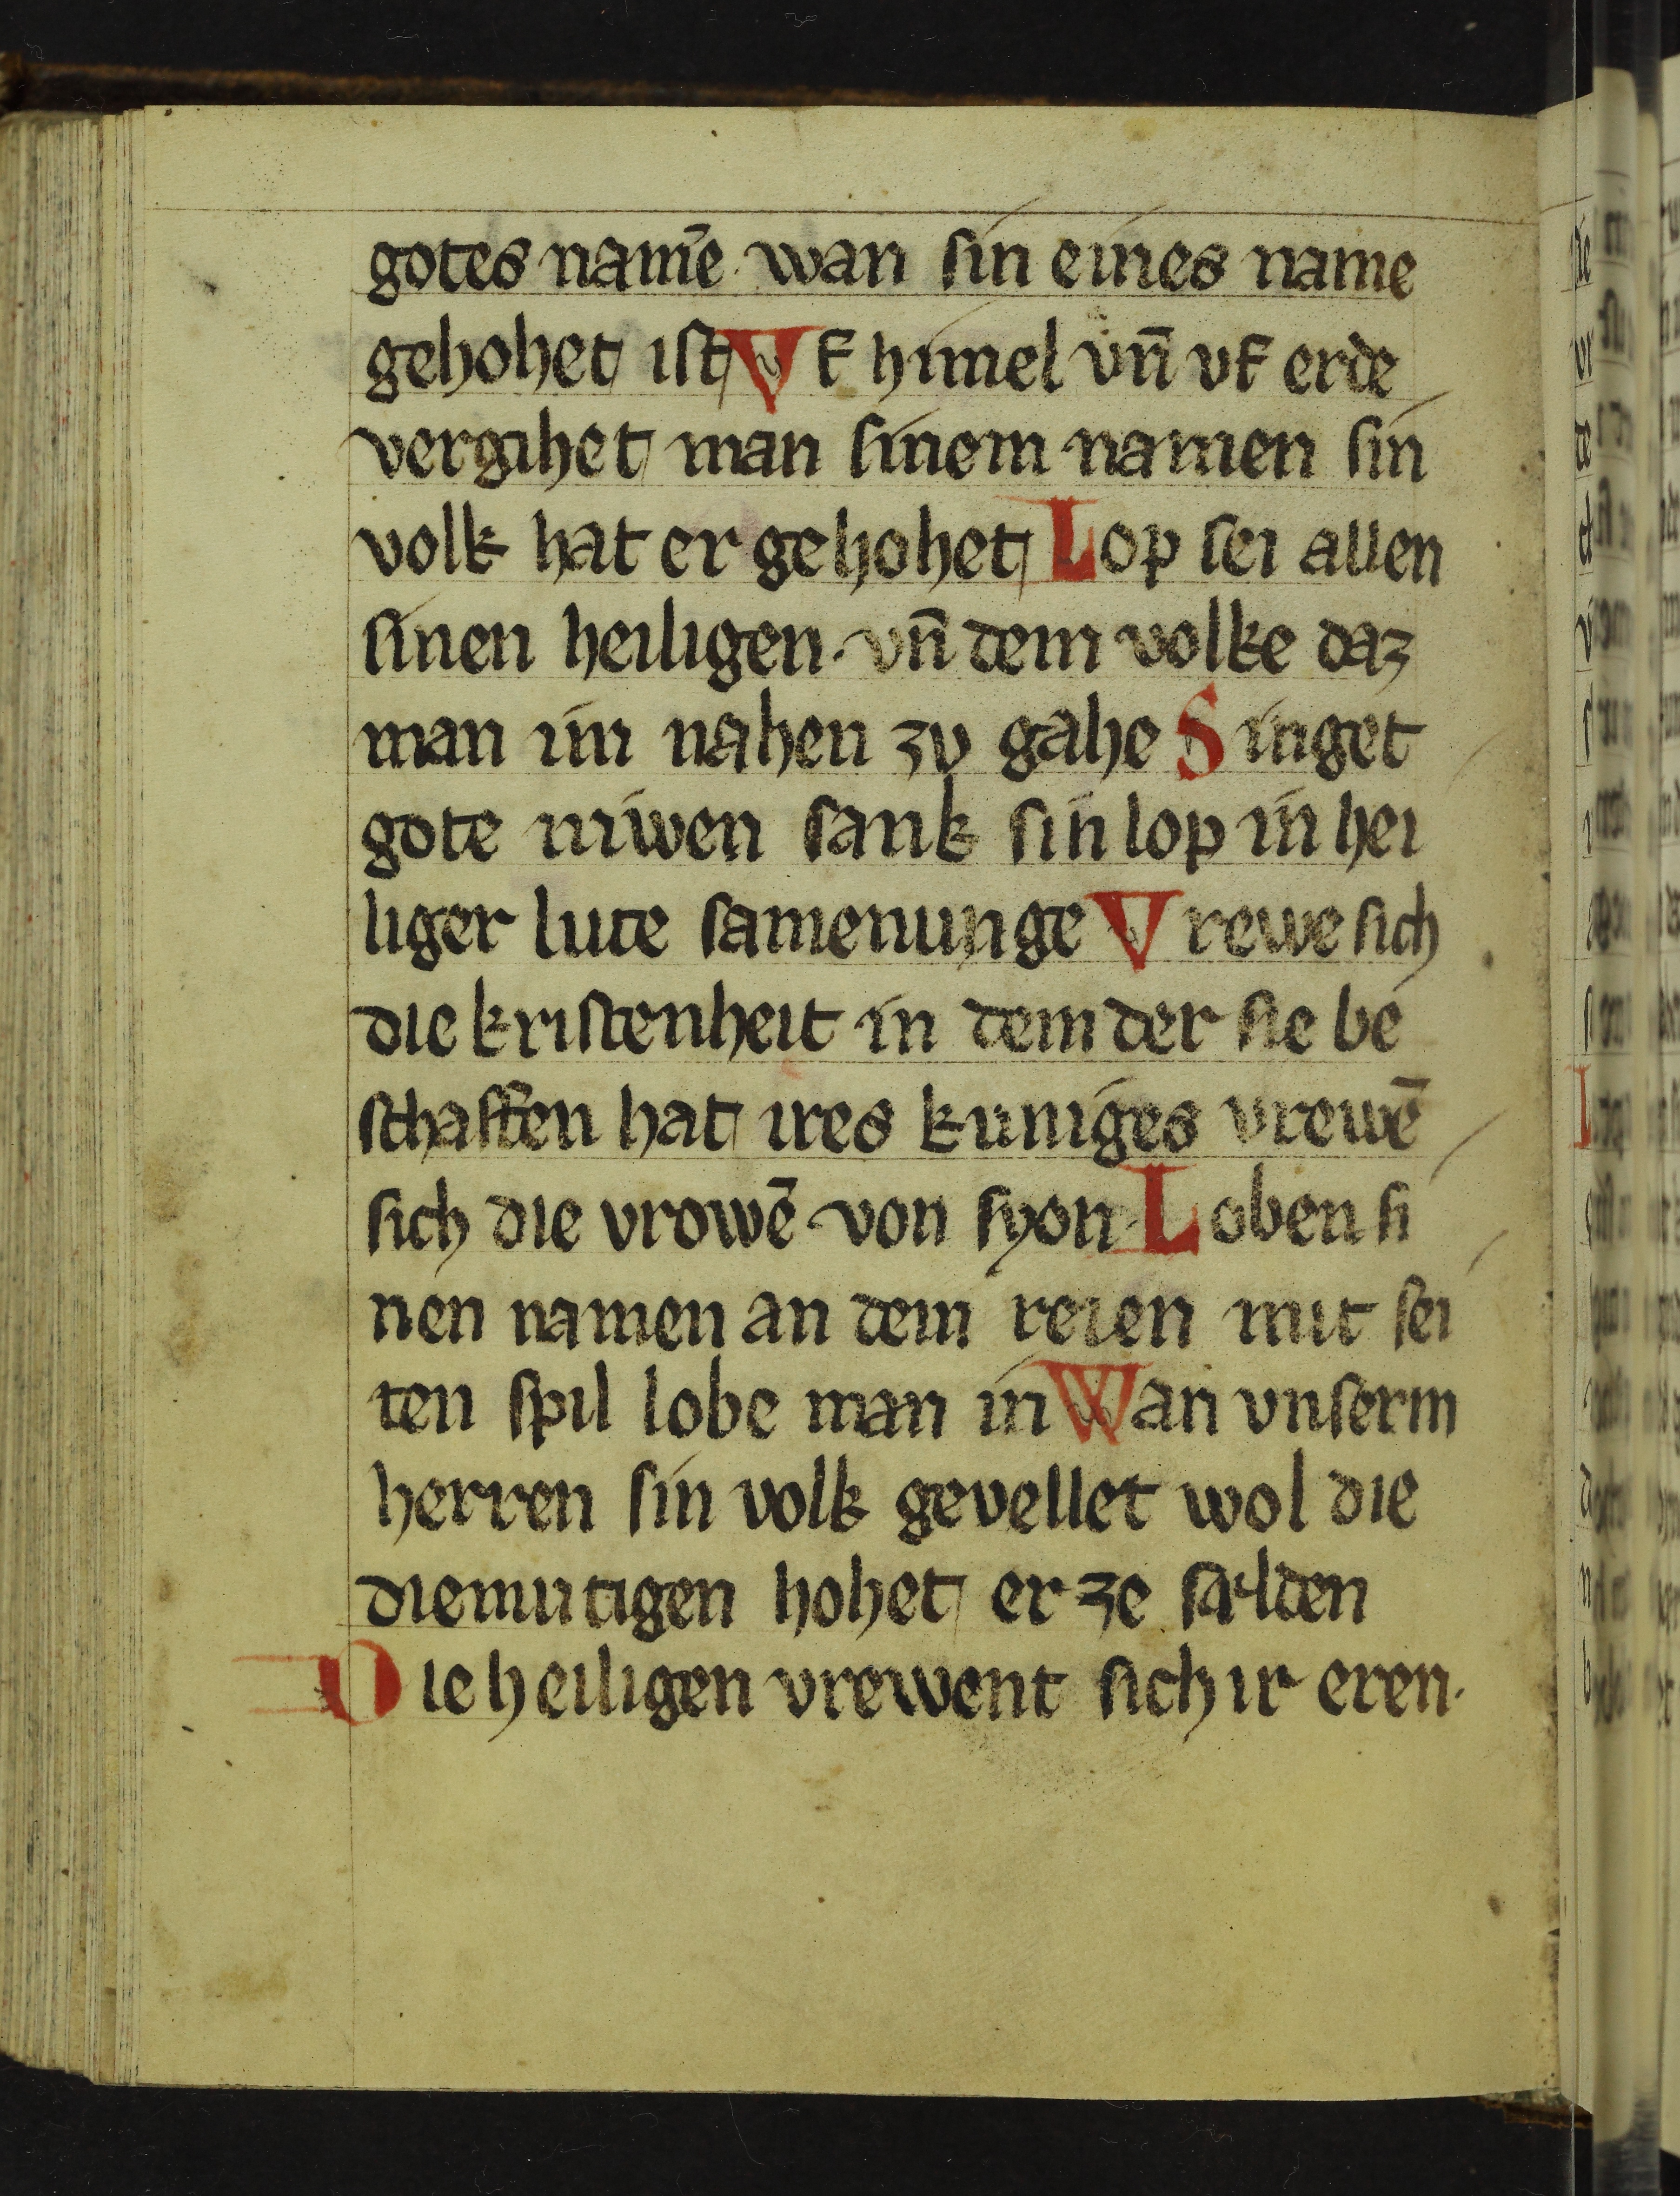 gotes namē. wan sin eines name
gehohet ist Vf himel vn̄ vf erde
vergihet man sinem namen sin
volk hat er gehohet Lop sei allen
sinen heiligen. vn̄ dem volke daz
man im nahen zv gahe Singet
gote niwen sank sin lop in hei
liger lute samenunge Vrewe sich
die kristenheit in dem der sie be
schaffen hat ires kuniges vrewē
sich die vrowē von syon. Loben si
nen namen an dem reien mit sei
ten spil lobe man in Wan vnserm
herren sin volk gevellet wol die
diemutigen hohet er ze sælden
Die heiligen vrewent sich ir eren.